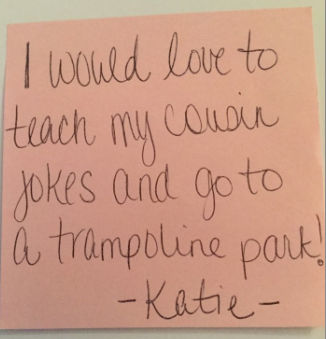 I would love to
teach my cousin
jokes and go to
a trampoline park!
-Katie-